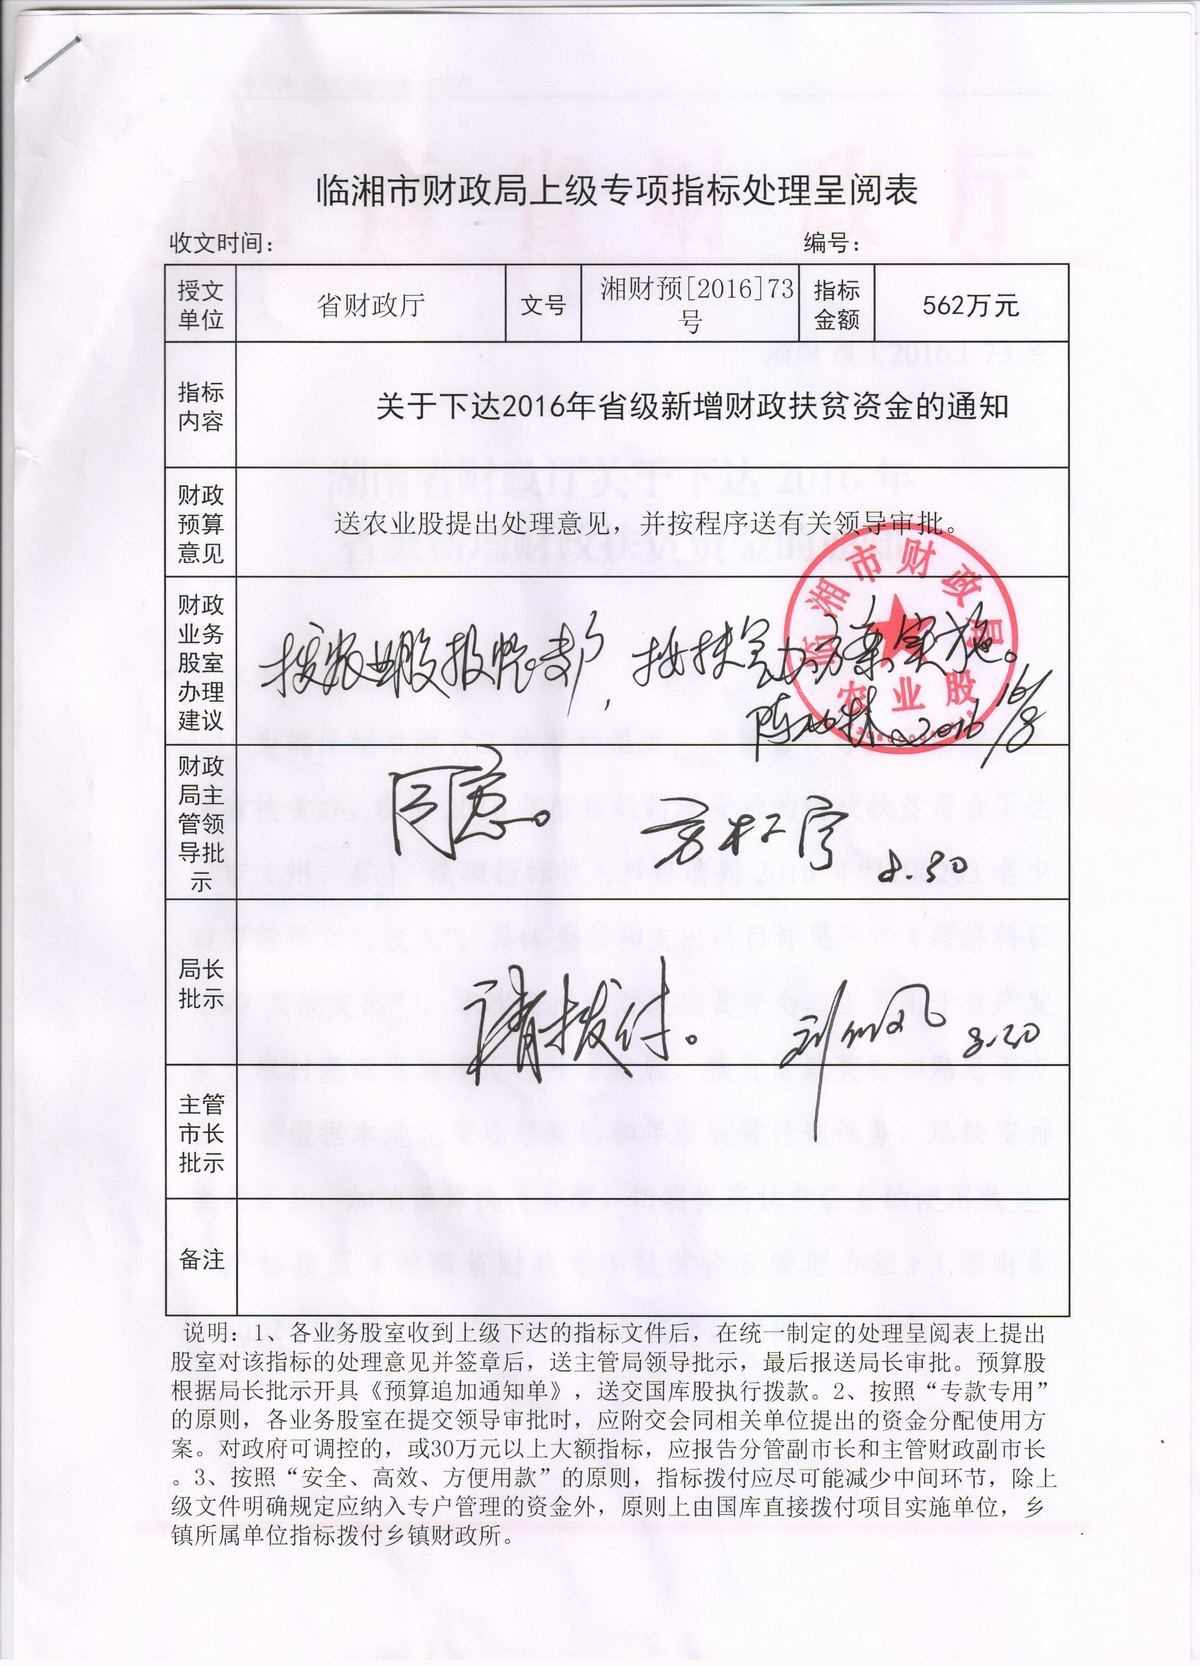 临湘市财政局上级专项指标处理呈阅表
收文时间： 编号：
授文单位 省财政厅 文号 湘财预[2016]73号 指标金额 562万元
指标内容 关于下达2016年省级新增财政扶贫资金的通知
财政预算意见 送农业股提出处理意见，并按程序送有关领导审批。
临湘市财政局
农业股
财政业务股室办理建议 拨农业股报账专户，按扶贫办方案实施。
2016 16/8
财政局主管领导批示 同意。
8.30
局长批示 请拨付。
8.30
主管市长批示
备注
说明：1、各业务股室收到上级下达的指标文件后，在统一制定的处理呈阅表上提出
股室对该指标的处理意见并签章后，送主管局领导批示，最后报送局长审批。预算股
根据局长批示开具《预算追加通知单》，送交国库股执行拨款。2、按照“专款专用”
的原则，各业务股室在提交领导审批时，应附交会同相关单位提出的资金分配使用方
案。对政府可调控的，或30万元以上大额指标，应报告分管副市长和主管财政副市长
。3、按照“安全、高效、方便用款”的原则，指标拨付应尽可能减少中间环节，除上
级文件明确规定应纳入专户管理的资金外，原则上由国库直接拨付项目实施单位，乡
镇所属单位指标拨付乡镇财政所。